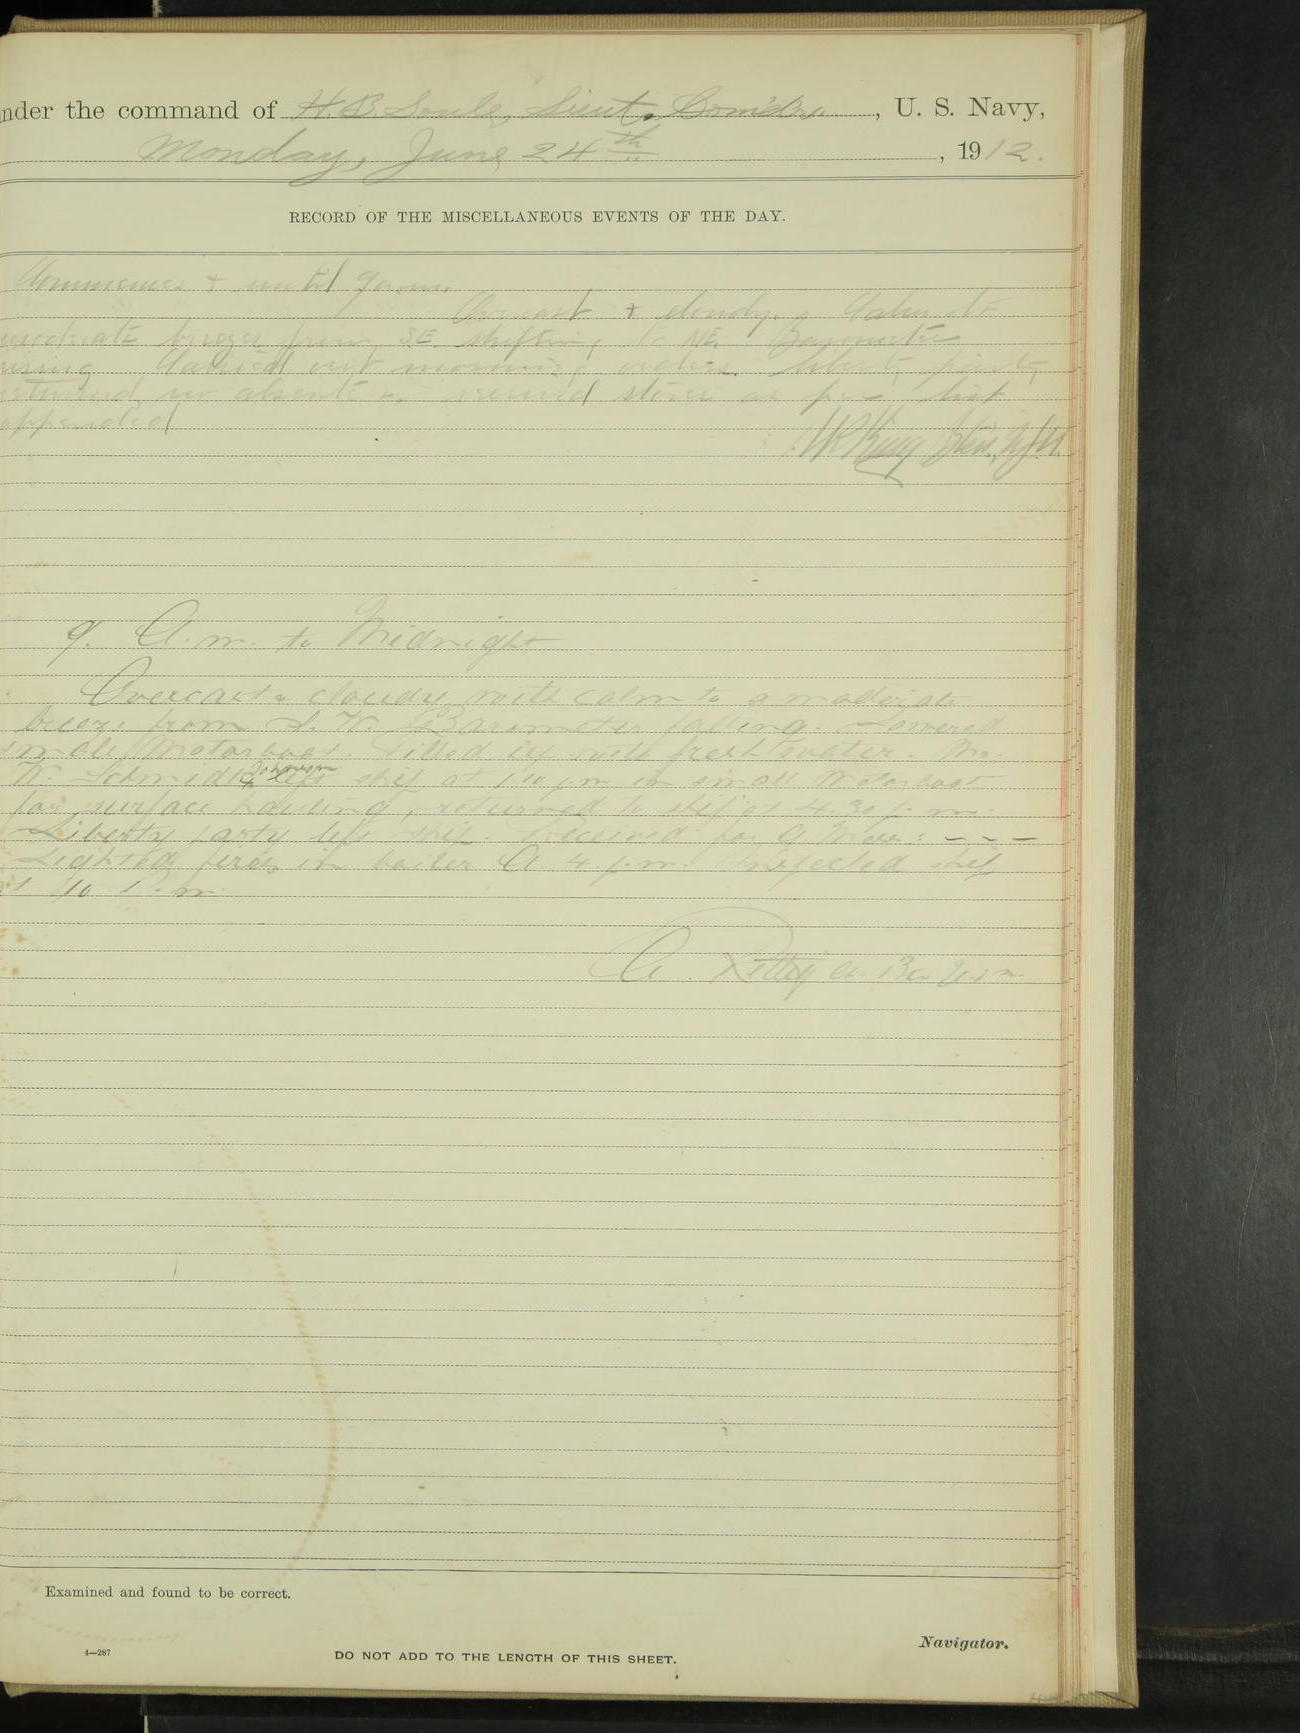 nder the command of H. B. Soule, Lieut. Comd'r., U. S. Navy,
Monday, June 24th, 1912.
RECORD OF THE MISCELLANEOUS EVENTS OF THE DAY.
Commences & until 9 a.m.
Overcast & cloudy. Calm to
moderate breeze from SE. shifting to NE. Barometer
rising Carried out morning orders. Liberty party
returned, no absentees. received stores as per list
appended
9. A.m. to Midnight
Overcast & cloudy with calm to a moderate
breeze from Barometer falling. Lowered
small Motorboat. Filled up with fresh water. Mr.
W. Schmidt & Johnson left ship at 1.10 p.m in small Motorboat
for surface hauling, returned to ship at 4.30 p.m.
Liberty party left ship. Received for
Lighted fires in boiler A 4. p.m. Inspected ship
10 P.m.
Examined and found to be correct.
Navigator.
4—267
DO NOT ADD TO THE LENGTH OF THIS SHEET.